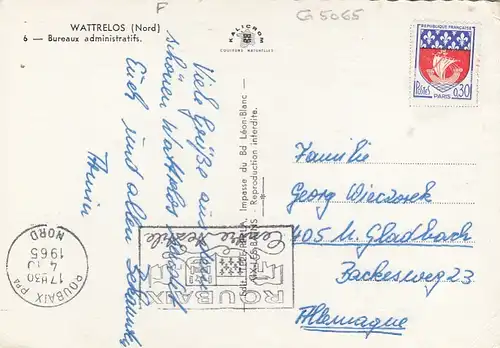 WATTRELOS (Nord)
6 — Bureaux administratifs.
F
KALICROM
COULEURS NATURELLES
CG 5065
REPUBLIQUE FRANÇAISE
POSTES
0,30
PARIS
Viele Grüße aus dem
schönen Wattrelos
Euch und allen Bekannten
Armin
Impasse du Bd Léon-Blanc —
AIX-LES-BAINS - Reproduction interdite.
Familie
Georg Wieczorek
405 M. Gladbach
Backesweg 23
Allemagne
ROUBAIX PPAL
17H30
1965
NORD
Centre
Textile
ROUBAIX